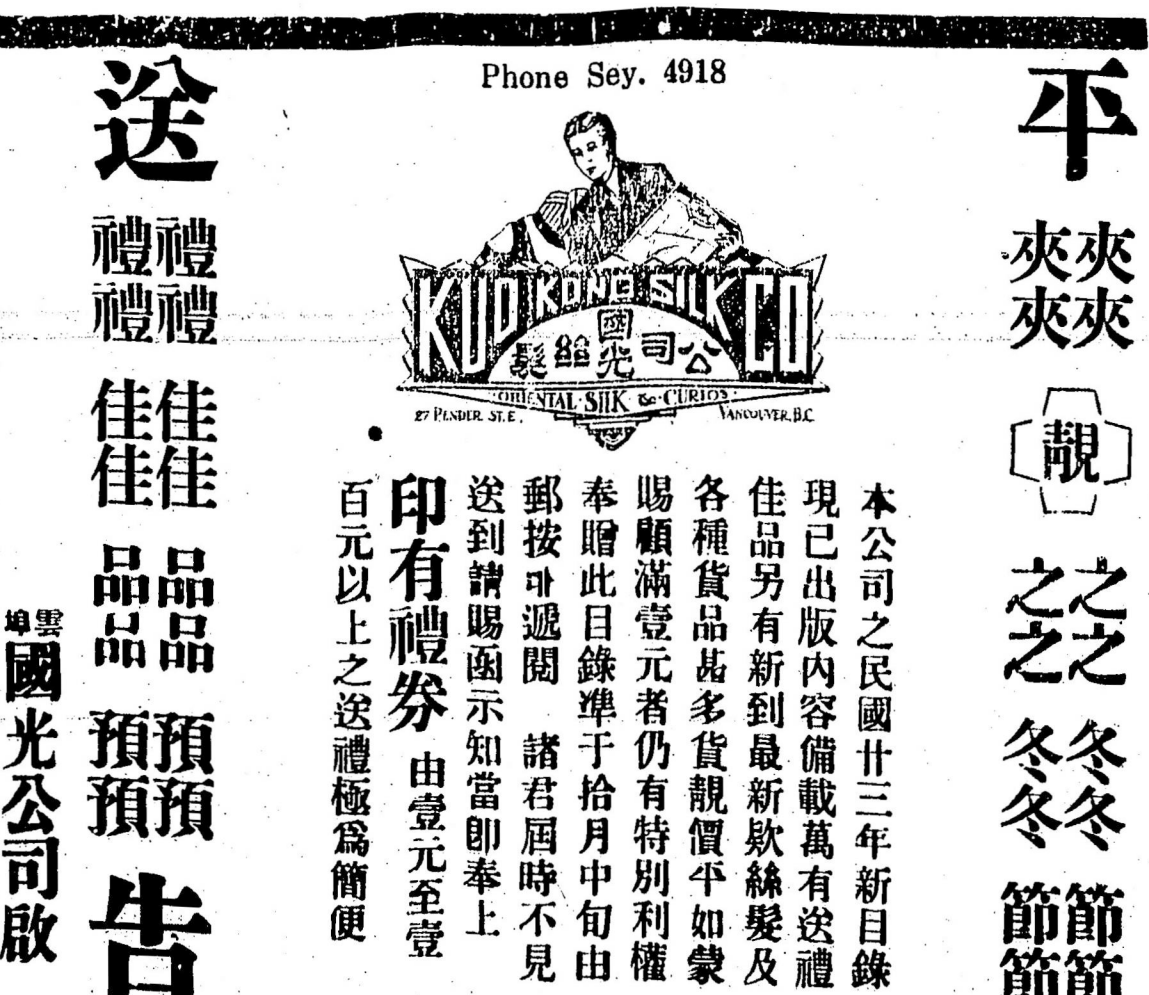 平
夾夾夾夾
靚
之之之之
冬冬冬冬
節節節節
Phone Sey. 4918
KUO KONG SILK CO
國光
髮絲 司公
ORIENTAL SILK & CURIOS
27 PENDER ST. E.
VANCOUVER, B.C.
本公司之民國廿三年新目錄
現已出版內容備載萬有送禮
佳品另有新到最新欵絲髮及
各種貨品甚多貨靚價平如蒙
賜顧滿壹元者仍有特別利權
奉贈此目錄準于拾月中旬由
郵按叶遞閱 諸君屆時不見
送到請賜函示知當卽奉上
印有禮券 由壹元至壹
百元以上之送禮極爲簡便
送
禮禮禮禮
佳佳佳佳
品品品品
預預預預
告
雲埠
國光公司啟